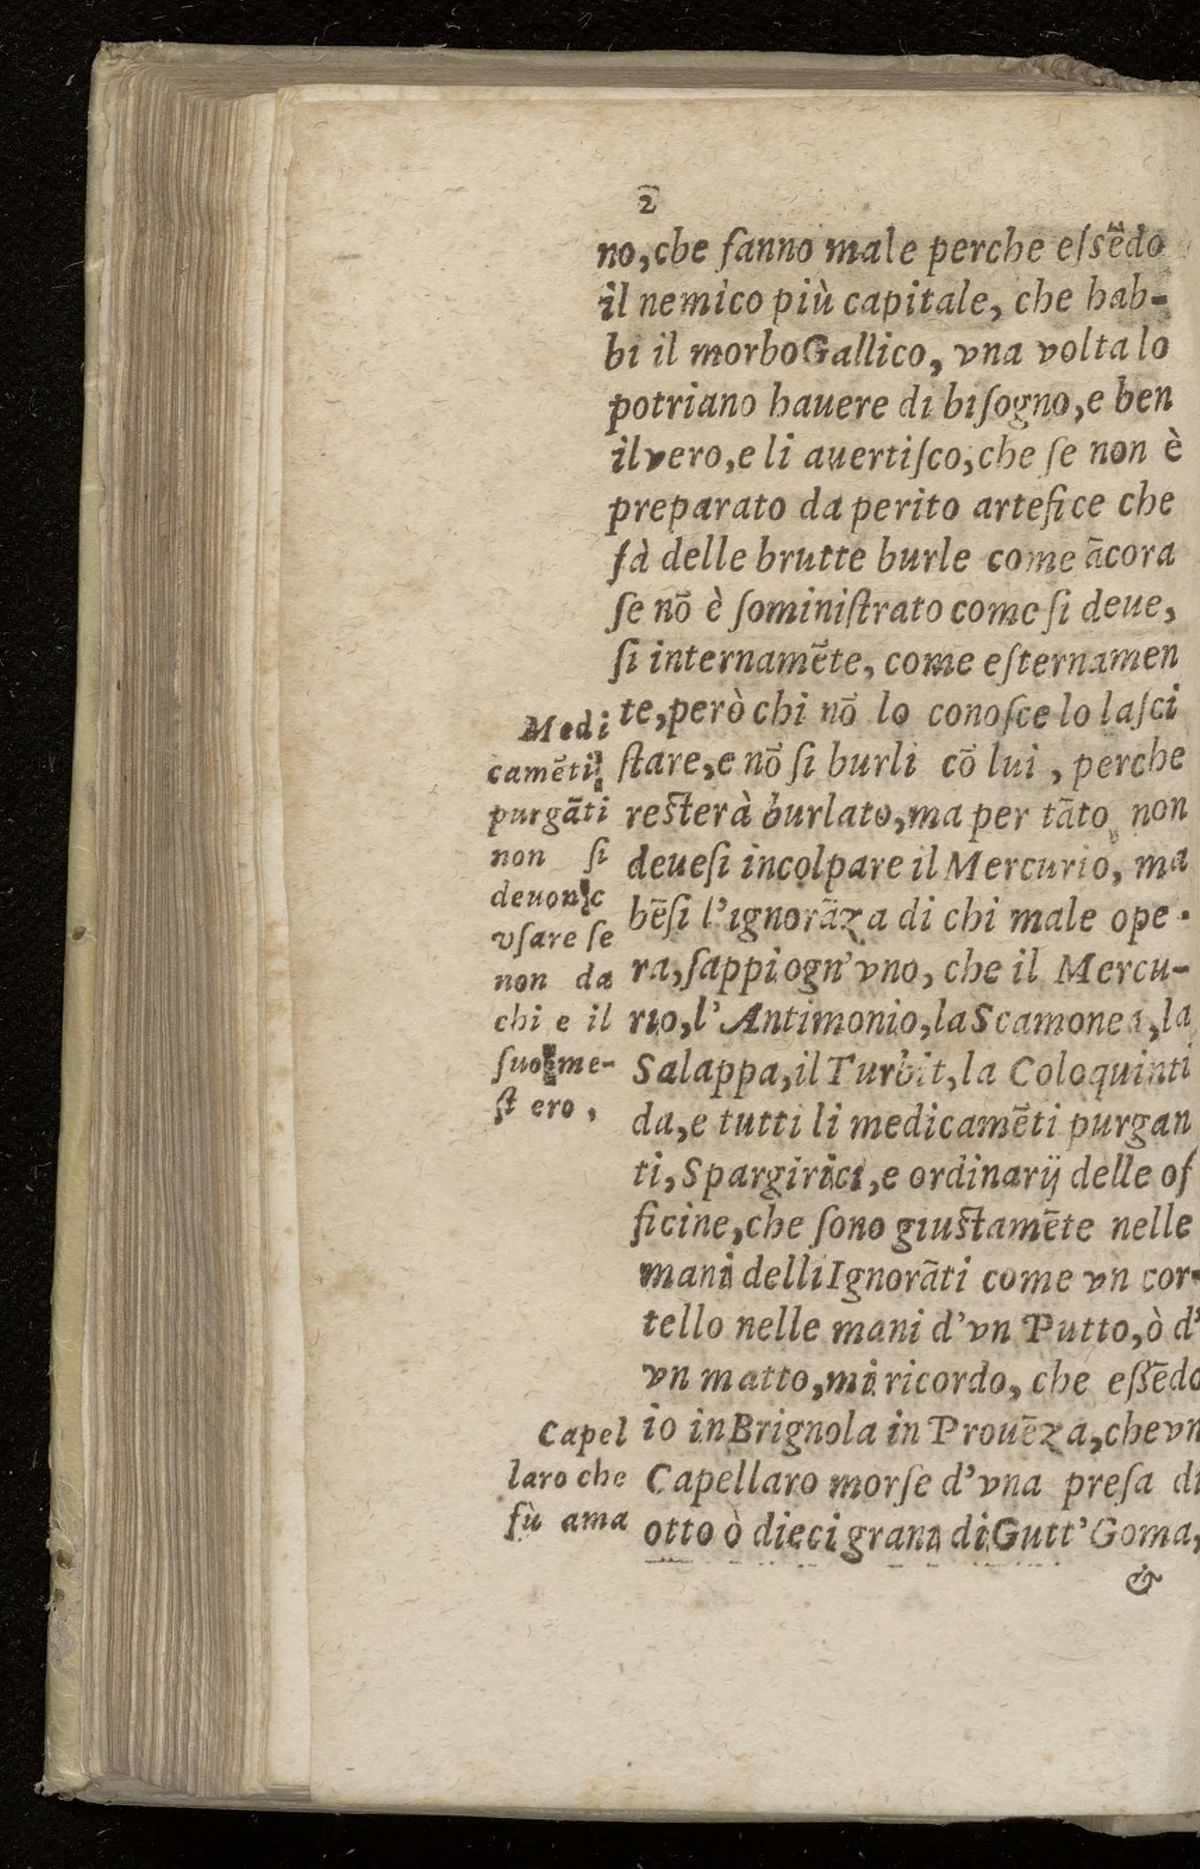 2
no, che fanno male perche eſsẽdo
il nemico più capitale, che hab-
bi il morbo Gallico, vna volta lo
potriano hauere di biſogno, e ben
il vero, e li auertiſco, che ſe non è
preparato da perito artefice che
fà delle brutte burle come ãcora
ſe nõ è ſominiſtrato come ſi deue,
ſi internamẽte, come eſternamen
te, però chi nõ lo conoſce lo laſci
ſtare, e nõ ſi burli cõ lui, perche
resterà burlato, ma per tãto non
deueſi incolpare il Mercurio, ma
bẽſi l'ignorãza di chi male ope-
ra, ſappi ogn'vno, che il Mercu-
rio, l'Antimonio, la Scamonea, la
Salappa, il Turbit, la Coloquinti
da, e tutti li medicamẽti purgan
ti, Spargirici, e ordinarij delle of
ficine, che ſono giustamẽte nelle
mani delli Ignorãti come vn cor-
tello nelle mani d'vn Putto, ò d'
vn matto, mi ricordo, che eſsẽdo
io in Brignola in Prouẽza, che vn
Capellaro morſe d'vna preſa di
otto ò dieci grani di Gutt'Goma,
&
Medi
camẽti
purgãti
non ſi
deuono
vſare ſe
non da
chi e il
ſuo me-
ſtero,
Capel
laro che
fù ama